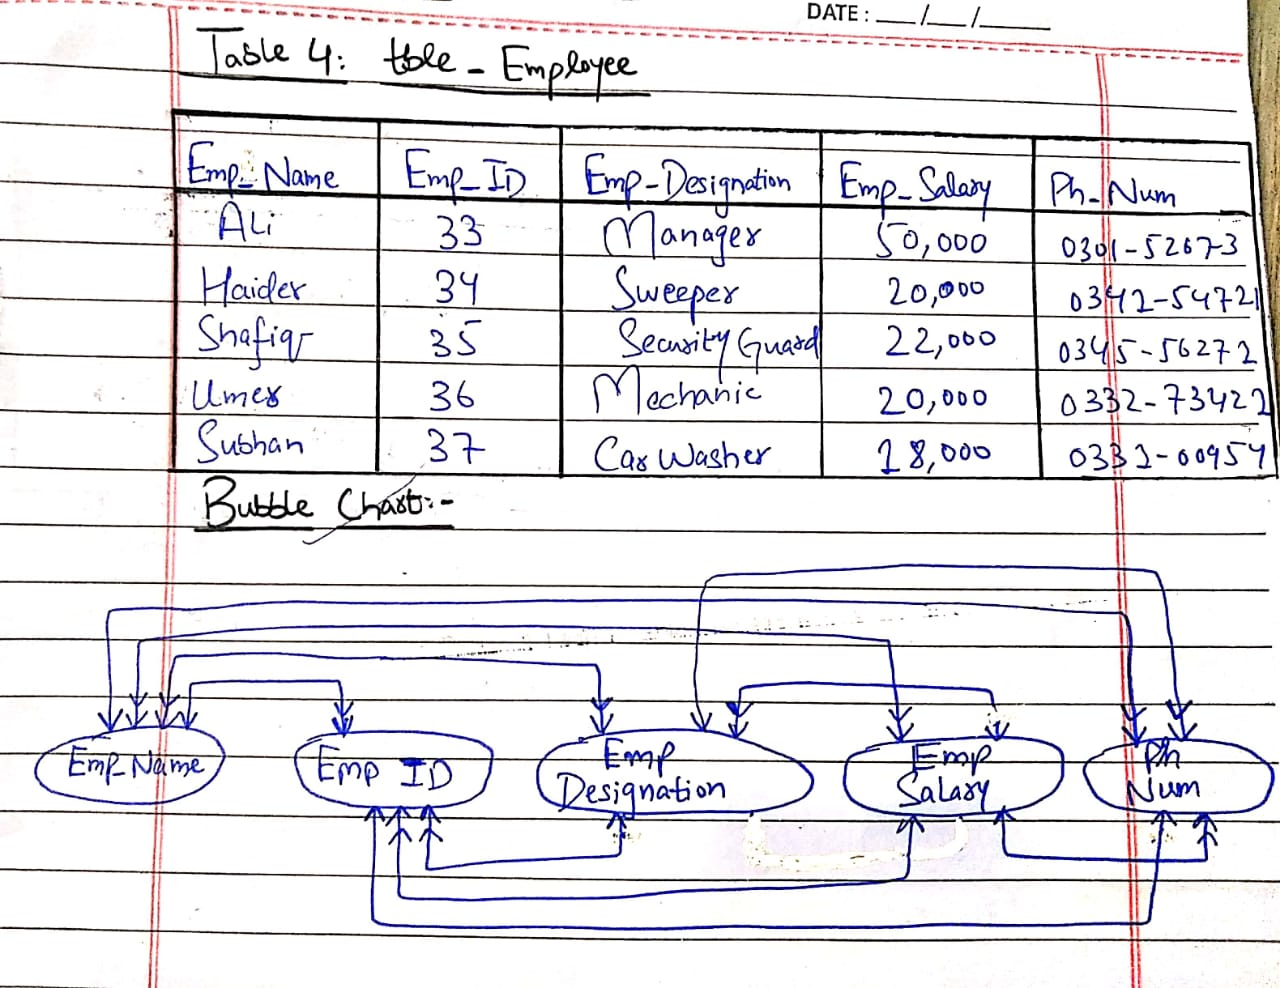 DATE: __/__/____
Table 4: tble - Employee
Emp_Name Emp_ID Emp-Designation Emp_Salary Ph_Num
Ali 33 Manager 50,000 0301-52673
Haider 34 Sweeper 20,000 0342-54721
Shafiq 35 Security Guard 22,000 0345-56272
Umer 36 Mechanic 20,000 0332-73422
Subhan 37 Car Washer 18,000 0331-00954
Bubble Chart:-
Emp_Name Emp ID Emp Designation Emp Salary Ph Num